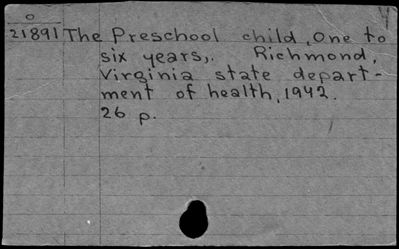 o
21891 The Preschool child, One to
six years,. Richmond,
Virginia state depart-
ment of health, 1942.
26 p.